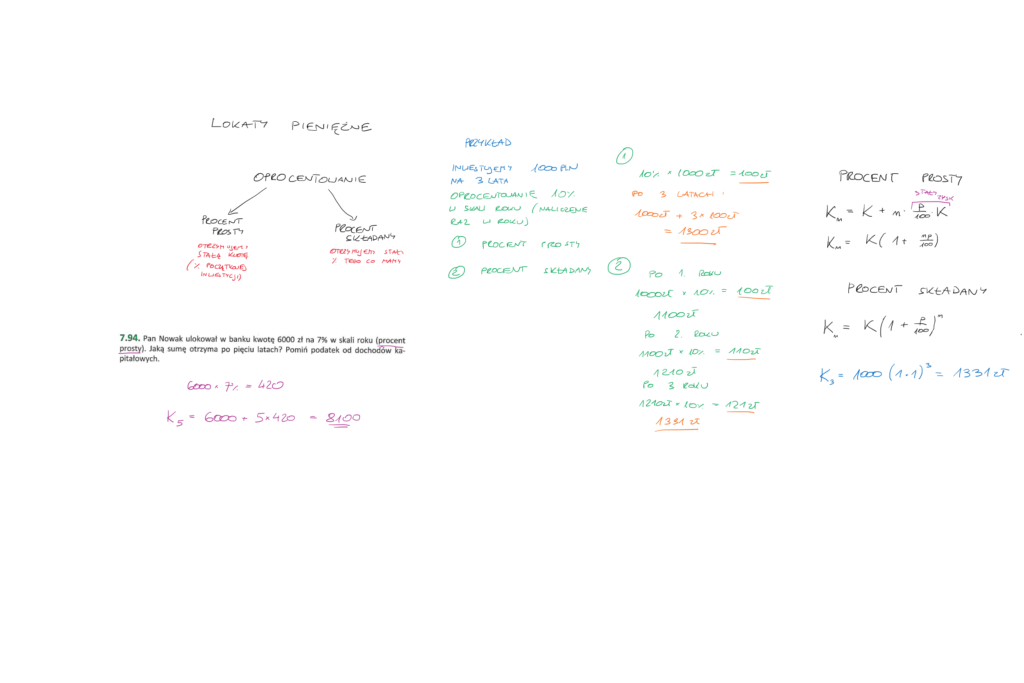 LOKATY PIENIĘŻNE
OPROCENTOWANIE
PROCENT
PROSTY
OTRZYMUJEMY
STAŁĄ KWOTĘ
(% POCZĄTKOWEJ
INWESTYCJI)
PROCENT
SKŁADANY
OTRZYMUJEMY STAŁY
% TEGO CO MAMY
7.94. Pan Nowak ulokował w banku kwotę 6000 zł na 7% w skali roku (procent
prosty). Jaką sumę otrzyma po pięciu latach? Pomiń podatek od dochodów ka-
pitałowych.
6000 * 7% = 420
K₅ = 6000 + 5*420 = 8100
PRZYKŁAD
INWESTUJEMY 1000 PLN
NA 3 LATA
OPROCENTOWANIE 10%
W SKALI ROKU (NALICZENE
RAZ W ROKU)
① PROCENT PROSTY
② PROCENT SKŁADANY
①
10% * 1000 zł = 100 zł
PO 3 LATACH:
1000 zł + 3*100 zł
= 1300 zł
②
PO 1. ROKU
1000 zł * 10% = 100 zł
1100 zł
PO 2. ROKU
1100 zł * 10% = 110 zł
1210 zł
PO 3 ROKU
1210 zł * 10% = 121 zł
1331 zł
PROCENT PROSTY
STAŁY
ZYSK
Kₙ = K + n · p/100 · K
Kₙ = K(1 + np/100)
PROCENT SKŁADANY
Kₙ = K(1 + p/100)ⁿ
K₃ = 1000 (1.1)³ = 1331 zł